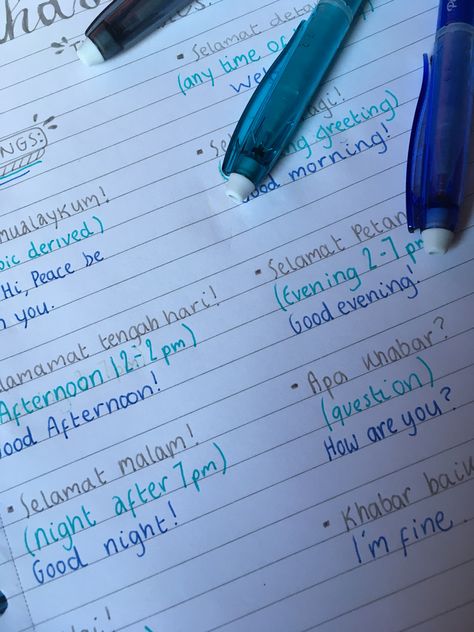 NGS:
mualaykum!
bic derived)
Hi, Peace be
you.
lamamat tengah hari!
Afternoon 12-2 pm)
ood Afternoon!
Selamat malam!
(night after 7pm)
Good night!
Selamat
(any time of
We
greeting)
Good morning!
Selamat Petan
(Evening 2-7 pm
Good evening!
Apa Khabar?
(question)
How are you?
Khabar baik
I'm fine